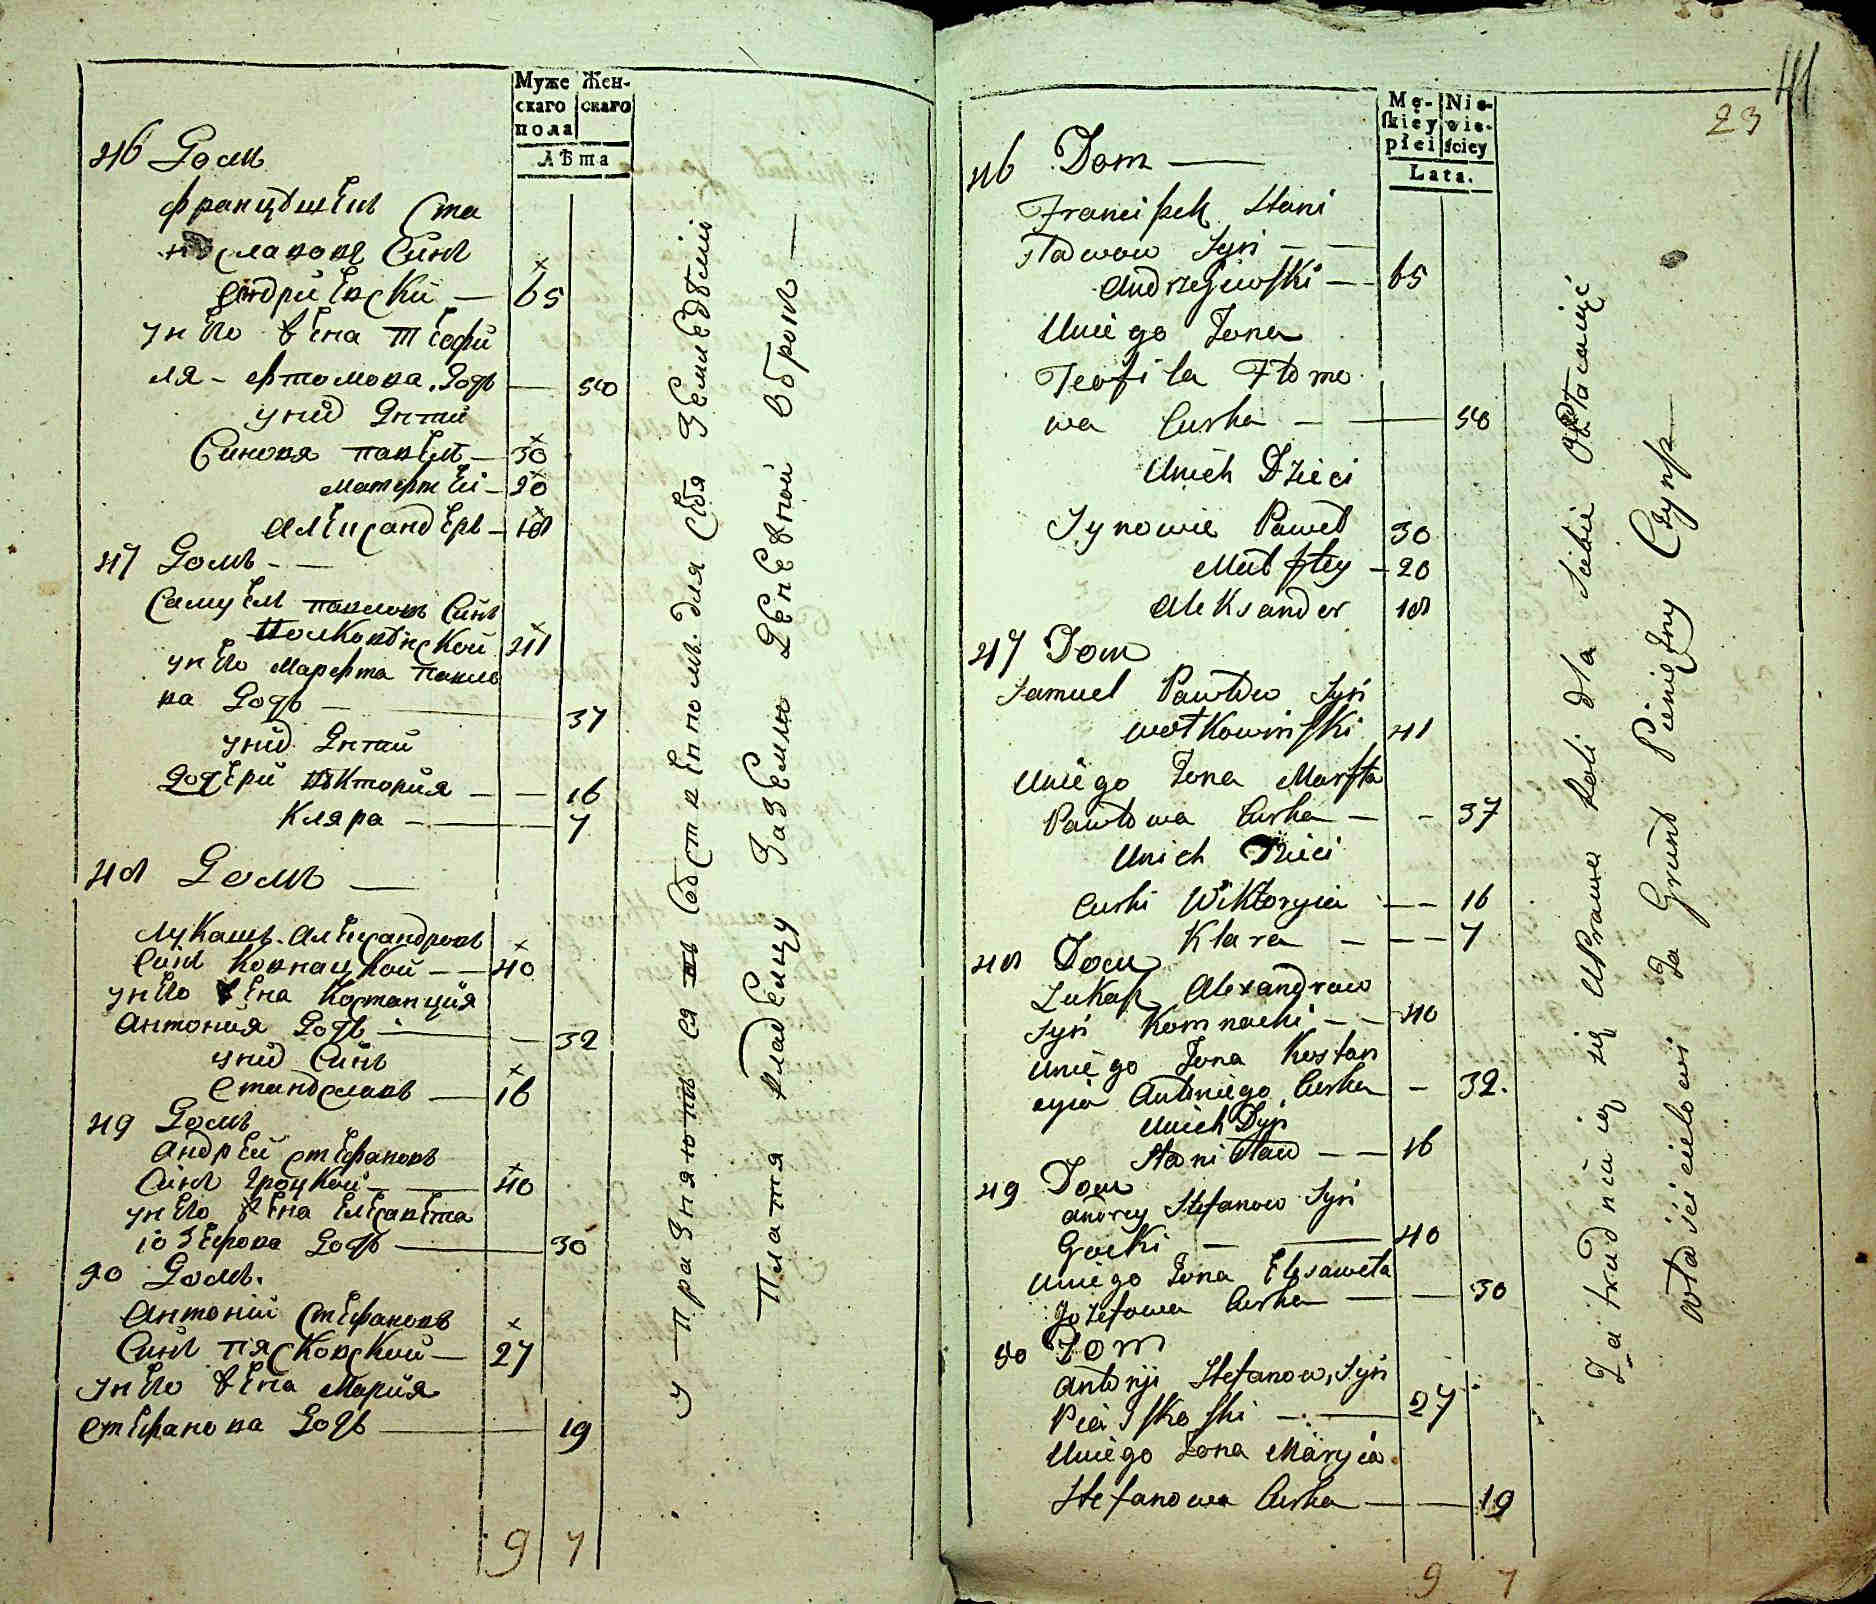 Муже Жен-
скаго скаго
пола
Лѣта
46 Домъ
Францѣшекъ Ста
ниславовъ Синъ
Ендриевски — 65
у него жена Теофи
ля — Дочь — 50
у нихъ Дѣти
Синовя Павелъ — 30
Матфей — 20
Александеръ — 18
47 Домъ — —
Самуель Павловъ Синъ
41
у него Марфта Павло
ва Дочь — 37
у нихъ Дѣти
Дочери Виктория — — 16
Кляра — 7
48 Домъ —
Лукашъ Александровъ
Синъ Ковнацкой — — 40
у него жена Костанция
Антония Дочь — — 32
у нихъ Синъ
Станѣславъ — 16
49 Домъ
Андрей Стефановъ
Синъ Гроцкой — 40
у него жена Елисавета
Іозефова Дочь — 30
50 Домъ.
Антоній Стефановъ
Синъ Пясковской — 27
у него жена Мария
Стефанова Дочь — 19
9 7
Упражняютъ ся въ Собственномъ для Себя Земледѣлiи
Платя владельцу За Землю Денежной Оброкъ —
41
23
Mę- Nie-
skiey wie-
płci sciey
Lata.
46 Dom —
Franciszek Stani
sławow Syn — —
Andrzejewski — — 65
Uniego Żona
Teofila
wa Curka — — 50
Unich Dzieci
Synowie Paweł 30
Matftey — 20
Aleksander 18
47 Dom
Samuel Pawłow Syn
Wołkowinski 41
Uniego Żona Marfta
Pawłowa Curka — - 37
Unich Dzieci
Curki Wiktoryia — — 16
Klara — — — 7
48 Dom
Łukasz Alexandrow
Syn Kownacki — — 40
Uniego Żona Kostan
cyia Antoniego Curka — 32.
Unich Syn
Stanisław — — 16
49 Dom
Andrey Stefanow Syn
Grocki — — 40
Uniego Żona Elisaweta
Jozefowa Curka — — 30
50 Dom
Antonji Stefanow, Syn
Piaskoski — — 27
Uniego Żona Maryia
Stefanowa Curka — — 19
9 7
Zatrudniaią się Uprawą Roli dla Siebie
Za Grunt Pieniężny Czynsz
właścicielowi